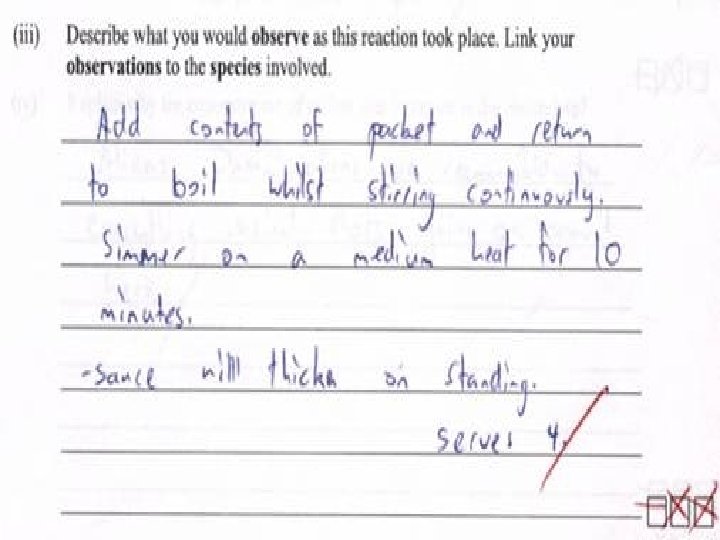 (iii) Describe what you would observe as this reaction took place. Link your
observations to the species involved.
Add contents of packet and return
to boil whilst stirring continuously.
Simmer on a medium heat for 10
minutes.
-Sauce will thicken on standing.
serves 4.